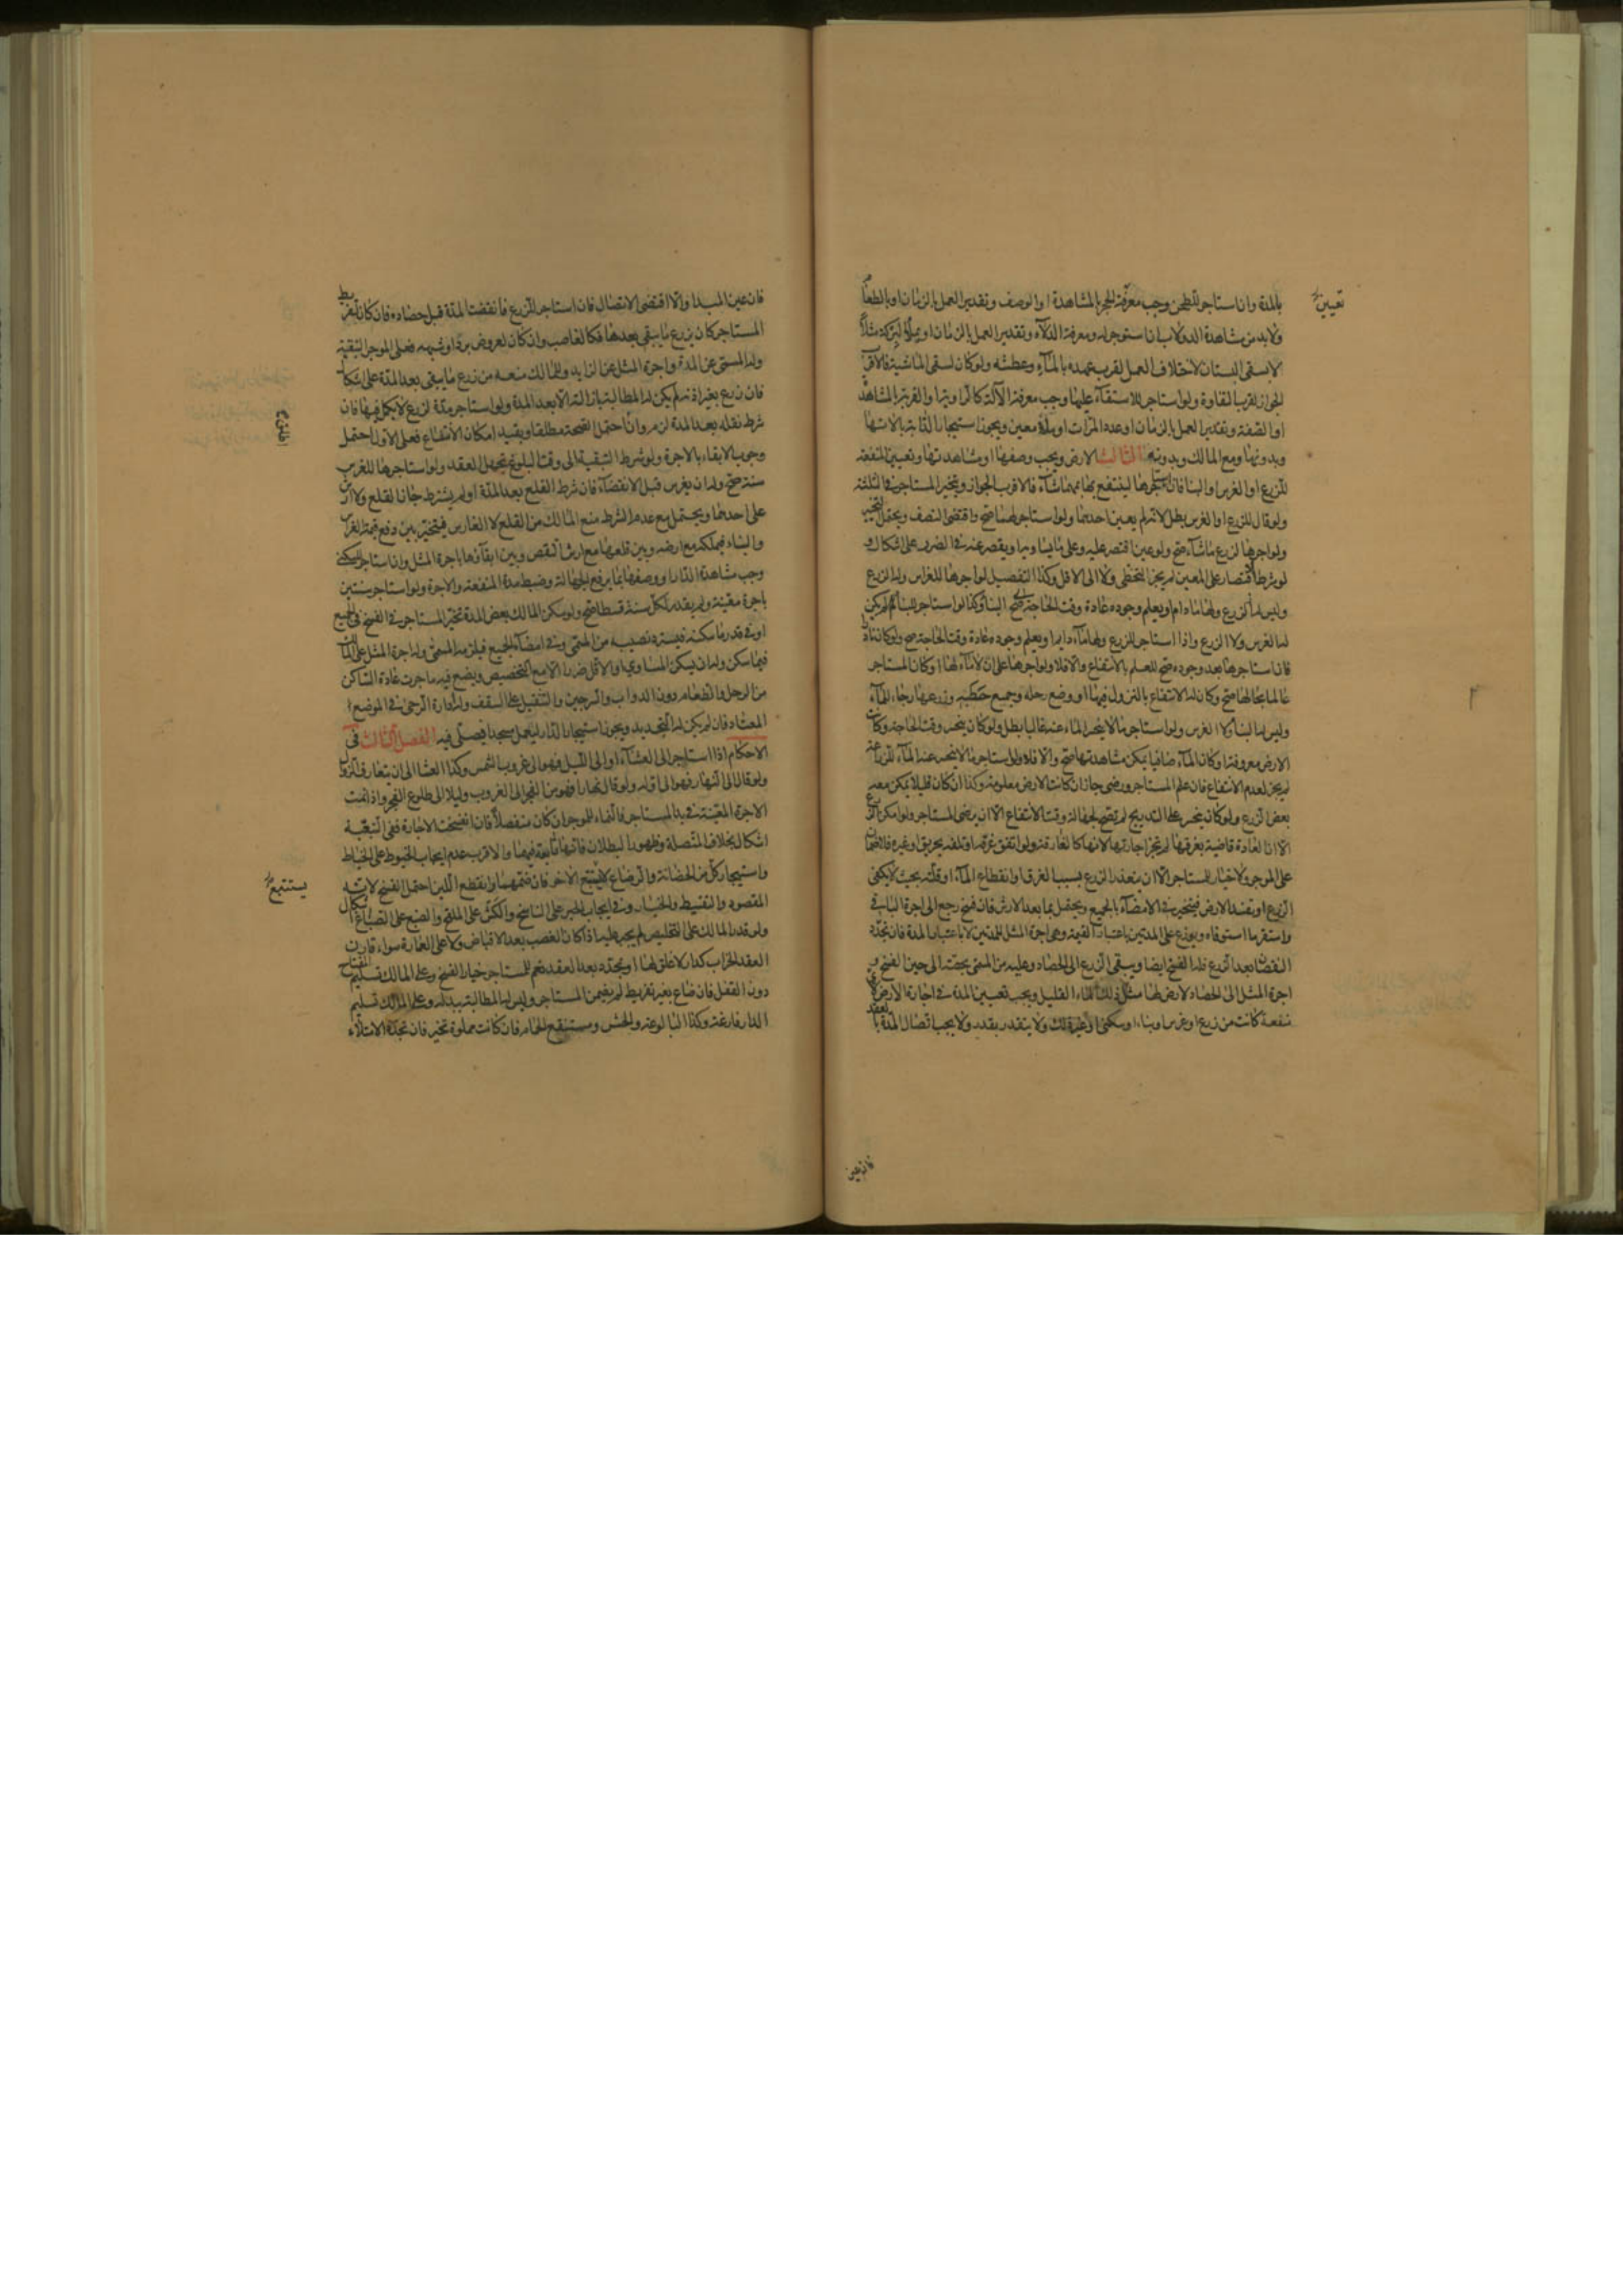 بالمدة وان استاجر للطحن وجب معرفة الحجر بالمشاهدة او الوصف وتقدير العمل بالزمان او بالطعام
ولا بد من مشاهدة الدولاب ان استوجر له ومعرفة الدلاء وتقدير العمل بالزمان او بملؤ البركة مثلا
لا بسقى البستان لاختلاف العمل لقرب عهده بالماء وعطشه ولو كان لسقى الماشية فالاقرب
الجواز لقرب التفاوت ولو استاجر للاستقاء عليها وجب معرفة الآلة كالراوية او القربة بالمشاهدة
او الصفة وتقدير العمل بالزمان او عدد المرات او بملؤ معين ويجوز استيجار الدابة بآلاتها
وبدونها ومع المالك وبدونه الثالث الارض ويجب وصفها او مشاهدتها وتعيين المنفعة
للزرع او الغرس او البنا فان استاجرها لينتفع بها بمهما شآء فالاقرب الجواز ويتخير المستاجر في الثلثة
ولو قال للزرع او الغرس بطل لانه لم يعين احدهما ولو استاجر لهما صح واقتضى النصف ويحتمل التخيير
ولو اجرها لزرع ما شآء صح ولو عين اقتصر عليه وعلى ما يساويه او يقصر عنه في الضرر على اشكال و
لو شرط الاقتصار على المعين لم يجز التخطى ولا الى الاقل وكذا التفصيل لو اجرها للغراس وله الزرع
وليس له الزرع ولها ماء دام او يعلم وجوده عادة وقت الحاجة صح البنا وكذا لو استاجر للبنا لم يكن
له الغرس ولا الزرع واذا استاجر للزرع ولها ماء دايم او يعلم وجوده عادة وقت الحاجة صح ولو كان نادرا
فان استاجرها بعد وجوده صح للعلم بالانتفاع والا فلا ولو اجرها على ان لا ماء لها او كان المستاجر
عالما بحالها صح وكان له الانتفاع بالنزول فيها او وضع رحله وجميع حطبه وزرعها رجاء للماء
وليس له البنا ولا الغرس ولو استاجر ما لا ينحسر الماء عنه غالبا بطل ولو كان ينحسر وقت الحاجة وكانت
الارض معروفة او كان المآء صافيا يمكن مشاهدتها صح والا فلا ولو استاجر ما لا ينحسر عنه المآء للزراعة
لم يجز لعدم الانتفاع فان علم المستاجر ورضى جاز ان كانت الارض معلومة وكذا ان كان قليلا يمكن معه
بعض الزرع ولو كان ينحسر على التدريج لم تصح لجهالة وقت الانتفاع الا ان يرضى المستاجر ولو امكن الزرع
الا ان العادة قاضية بغرقها لم يجز اجارتها لانها كالغارقة ولو اتفق غرقه او تلفه بحريق او غيره فلا ضمان
على الموجر ولا خيار للمستاجر الا ان يتعذر الزرع بسبب الغرق او انقطاع المآء او قلته بحيث لا يكفى
الزرع او تفسد الارض فيتخير في الامضآء بالجميع ويحتمل بما بعد الارش فان فسخ رجع الى اجرة الباقى
واستقر ما استوفاه ويوزع على المدتين باعتبار القيمة وهى اجرة المثل للمدتين لا باعتبار المدة فان تجدد
النقصان بعد الزرع فله الفسخ ايضا ويبقى الزرع الى الحصاد وعليه من المسمى بحصته الى حين الفسخ و
اجرة المثل الى الحصاد لارض لها مثل ذلك الماء القليل ويجب تعيين المدة في اجارة الارض لاى
منفعة كانت من زرع او غرس او بناء او سكنى او غير ذلك ولا يتقدر بقدر ولا يجب اتصال المدة بالعقد
تعيين
فان عين
فان عين المبدا والا اقتضى الاتصال فان استاجر للزرع فانقضت المدة قبل حصاده فان كان لتفريط
المستاجر كان يزرع ما يبقى بعدها فكالغاصب وان كان لعروض برد او شبهه فعلى الموجر التبقية
وله المسمى عن المدة واجرة المثل عن الزايد وللمالك منعه من زرع ما يبقى بعد المدة على اشكال
فان زرع بغير اذنه لم يكن له المطالبة بازالته الا بعد المدة ولو استاجر مدة لزرع لا يكمل فيها فان
شرط نقله بعد المدة لزم وان احتمل الصحة مطلقا وبقيد امكان الانتفاع فعلى الاول احتمل
وجوب الابقاء بالاجرة ولو شرط التبقية الى وقت البلوغ تجهل العقد ولو استاجرها للغرس
سنة صح وله ان يغرس قبل الانقضآء فان شرط القلع بعد المدة او لم يشترط جاز القلع ولا ارش
على احدهما ويحتمل مع عدم الشرط منع المالك من القلع لا الغارس فيتخير بين دفع قيمة الغراس
والبناء فيملكه مع ارضه وبين قلعهما مع ارش النقص وبين ابقآئهما باجرة المثل وان استاجر للسكنى
وجب مشاهدة الدار او وصفها بما يرفع الجهالة وضبط مدة المنفعة والاجرة ولو استاجر سنتين
باجرة معينة ولم يقدر لكل سنة قسطا صح ولو سكن المالك بعض المدة تخير المستاجر في الفسخ في الجميع
او في قدر ما سكنه فيسترد نصيبه من المسمى وفي امضآء الجميع فيلزمه المسمى وله اجرة المثل على المالك
فيما سكن وله ان يسكن المساوى او الاقل ضررا الا مع التخصيص ويضع فيه ما جرت عادة الساكن
من الرحل والطعام دون الدواب والسرجين والتثقيل على السقف وله ادارة الرحى في الموضع
المعتاد فان لم يكن له التجديد ويجوز استيجار الدار ليعمل مسجدا فيصلى فيه الفصل الثالث في
الاحكام اذا استاجر الى العشآء او الى الليل فهو الى غروب الشمس وكذا العشا الا ان يتعارف الزوال
ولو قال الى النهار فهو الى اوله ولو قال نهارا فهو من الفجر الى الغروب وليلا الى طلوع الفجر واذا نمت
الاجرة المعينة في يد المستاجر فالنماء للموجر ان كان منفصلا فان انفسخت الاجارة ففى التبعية
اشكال بخلاف المتصلة وظهور البطلان فانها تابعة فيهما والاقرب عدم ايجاب الخيوط على الخياط
واستيجار كل من الحضانة والرضاع لا يستتبع الآخر فان ضمهما فانقطع اللبن احتمل الفسخ لانه
المقصود والتقسيط والخيار وفي ايجاب الحبر على الناسخ والكش على الملقح والصبغ على الصباغ اشكال
ولو قدر المالك على التخليص لم يجب عليه اذا كان الغصب بعد الاقباض ولا على العمارة سواء قارن
العقد الخراب كدار لا غلق لها او تجدد بعد العقد نعم للمستاجر خيار الفسخ وعلى المالك تسليم المفتاح
دون القفل فان ضاع بغير تفريط لم يضمن المستاجر وليس له المطالبة ببدله وعلى المالك تسليم
الدار فارغة وكذا البالوعة والحش ومستنقع الحمام فان كانت مملوة تخير فان تجدد الامتلاء
يستتبع